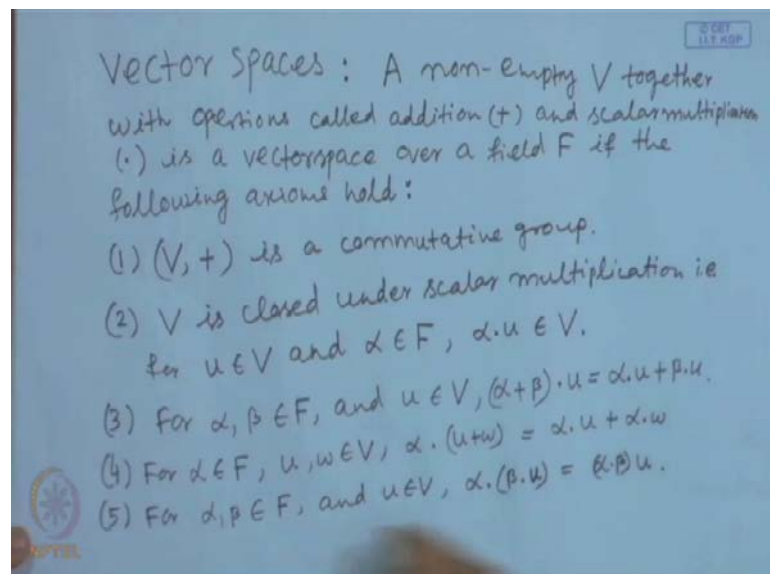 © CET
I.I.T. KGP
Vector Spaces : A non-empty V together
with opertions called addition (+) and scalar multiplication
(·) is a vectorspace over a field F if the
following axioms hold :
(1) (V, +) is a commutative group.
(2) V is closed under scalar multiplication ie
for u ∈ V and α ∈ F, α·u ∈ V.
(3) For α, β ∈ F, and u ∈ V, (α+β)·u = α·u + β·u.
(4) For α ∈ F, u, w ∈ V, α·(u+w) = α·u + α·w
(5) For α, β ∈ F, and u ∈ V, α·(β·u) = (α·β) u.
NPTEL